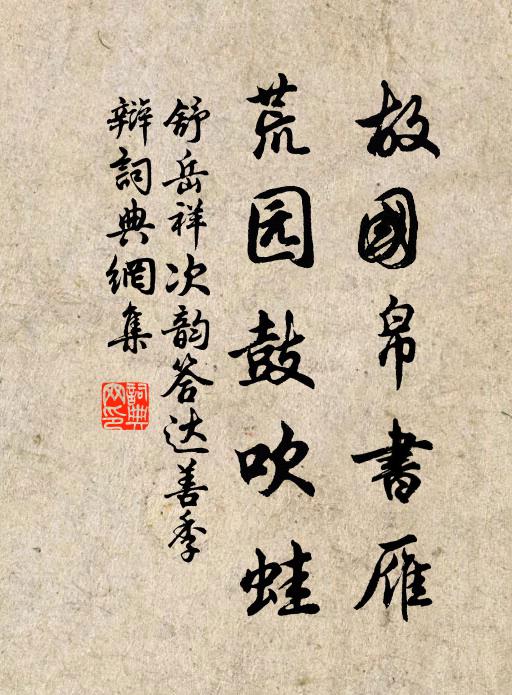 故國帛書雁
荒园鼓吹蛙
舒岳祥次韵答达善季
辩詞典網集
詞典
网印